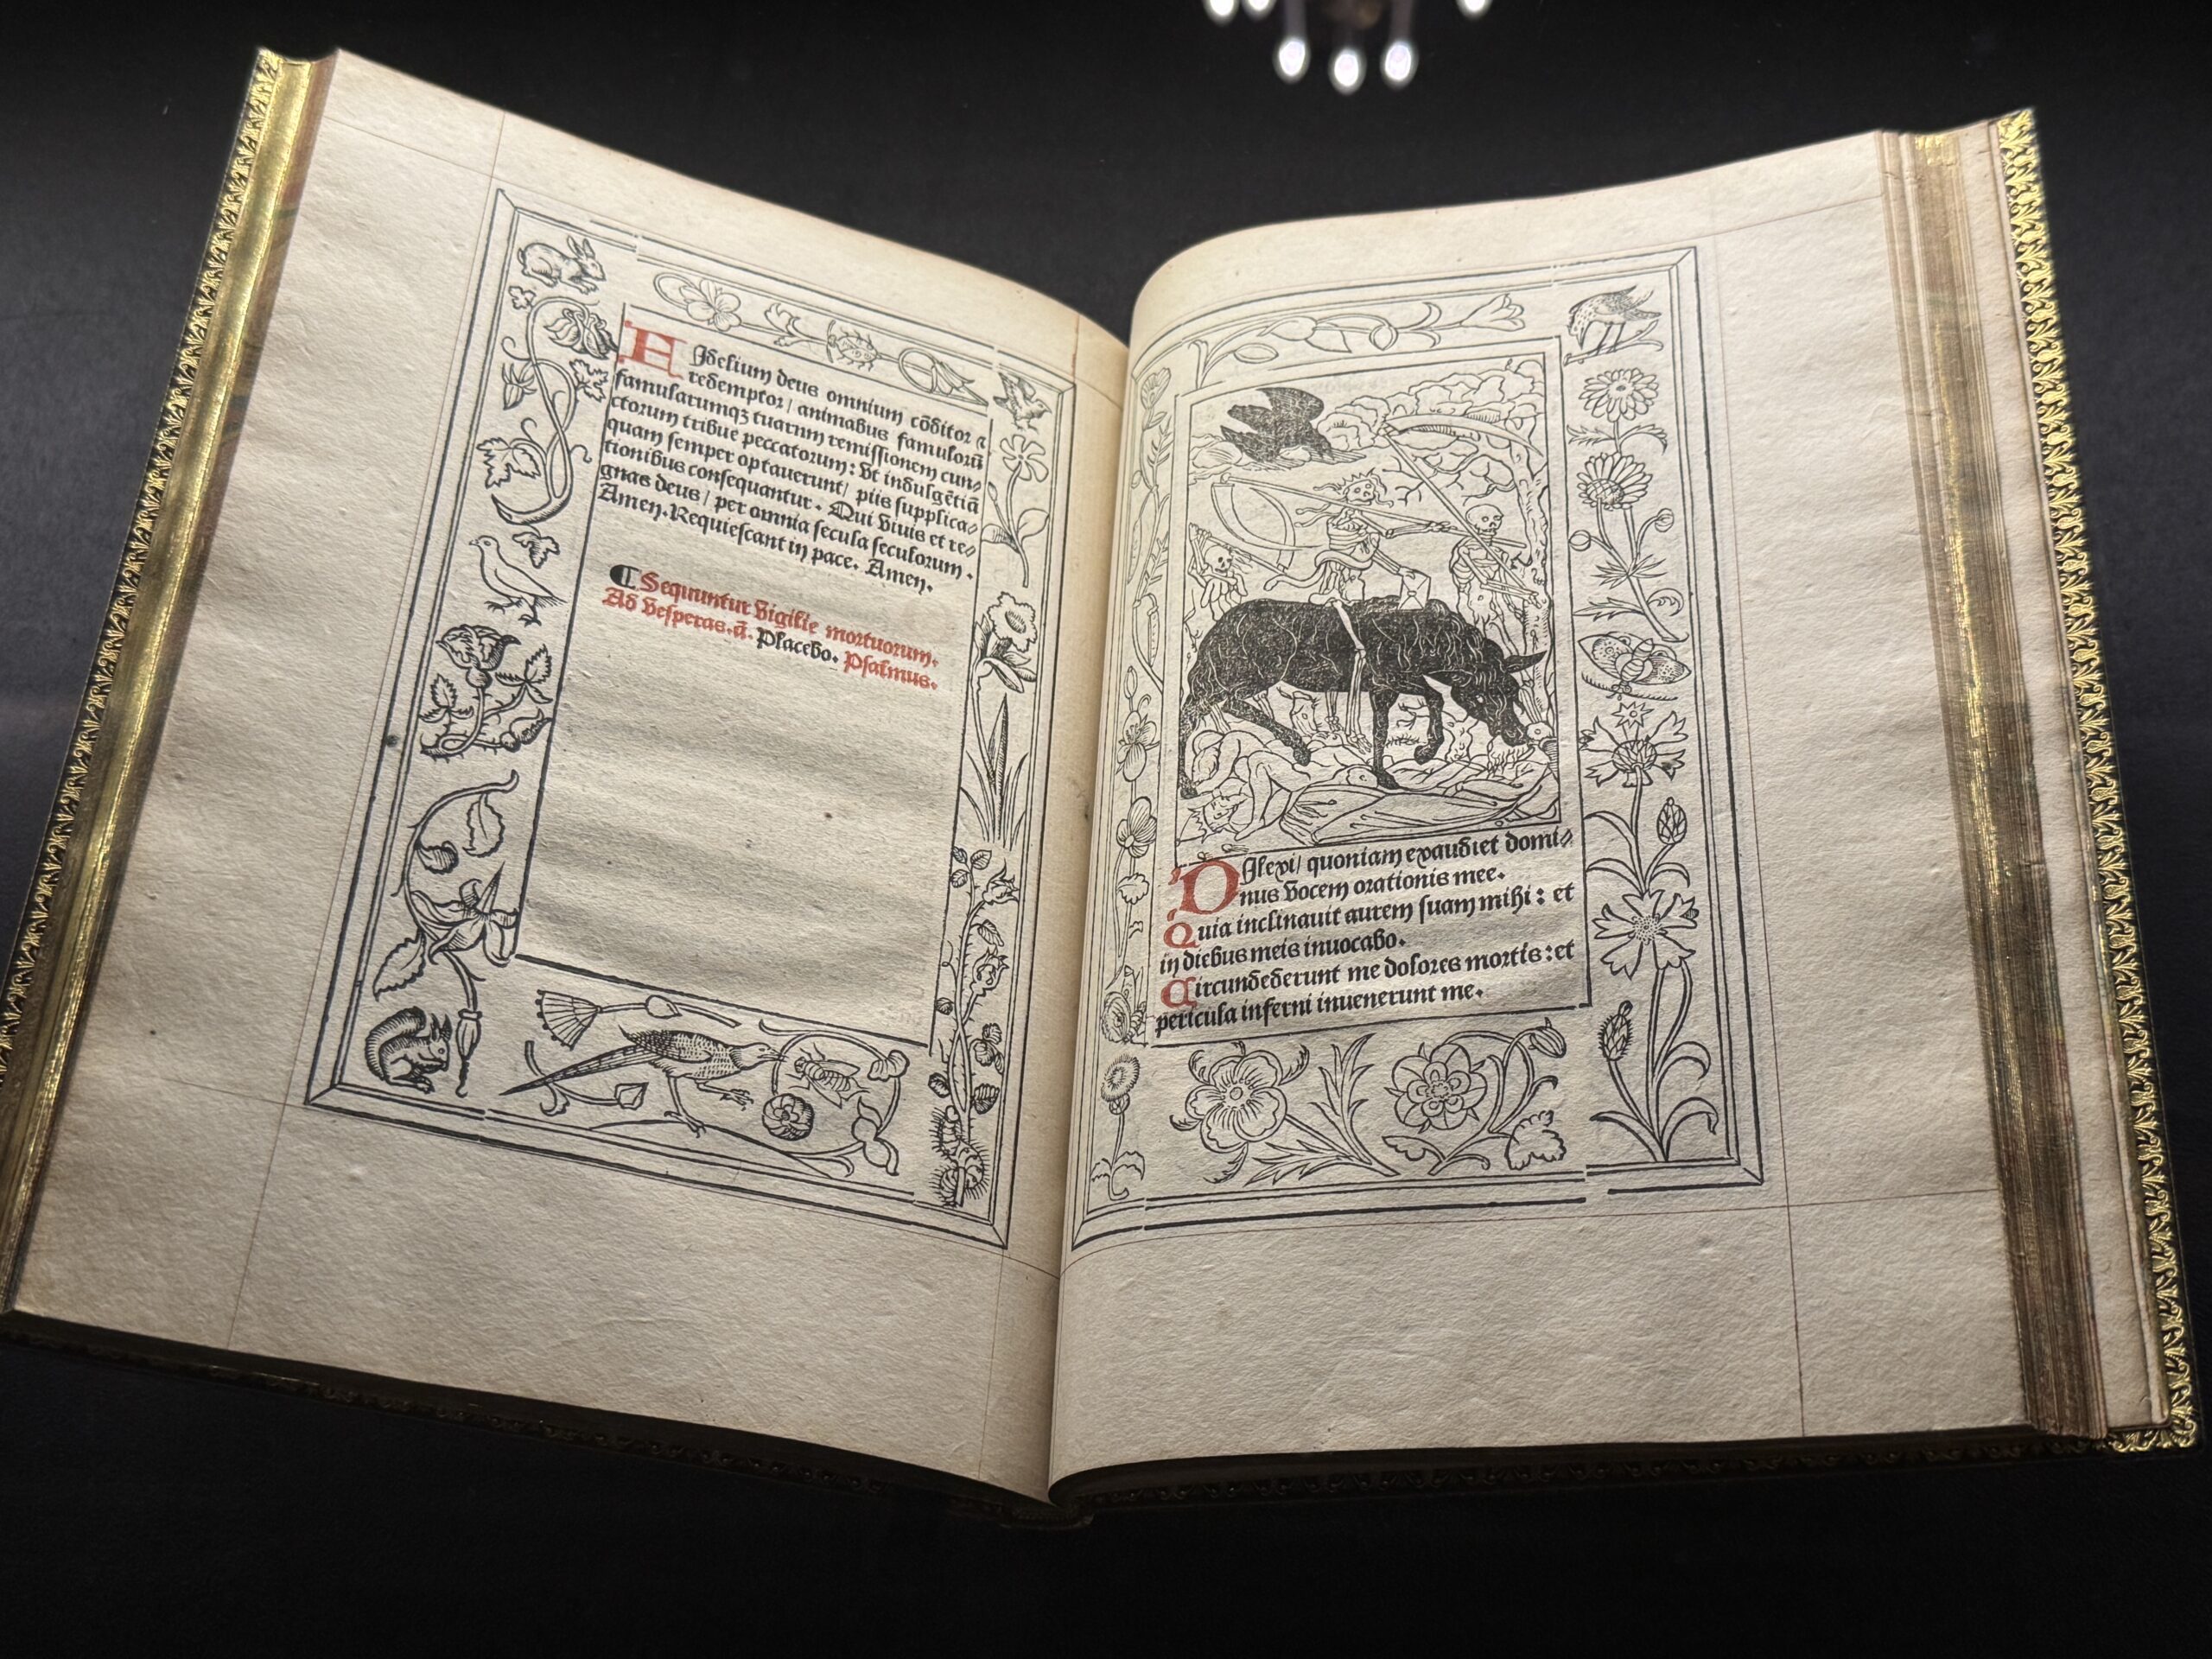 FJdelium deus omnium cōditor ⁊
redemptor / animabus famulorū
famularumqꝫ tuarum remissionem cun⸗
ctorum tribue peccatorum : vt indulgētiā
quam semper optauerunt / piis supplica⸗
tionibus consequantur . Qui viuis et re⸗
gnas deus / per omnia secula seculorum .
Amen . Requiescant in pace . Amen .
¶ Sequuntur vigilie mortuorum .
Ad vesperas . ā . Placebo . Psalmus .
DJlexi / quoniam exaudiet domi⸗
nus vocem orationis mee .
Quia inclinauit aurem suam mihi : et
in diebus meis inuocabo .
Circundederunt me dolores mortis : et
pericula inferni inuenerunt me .